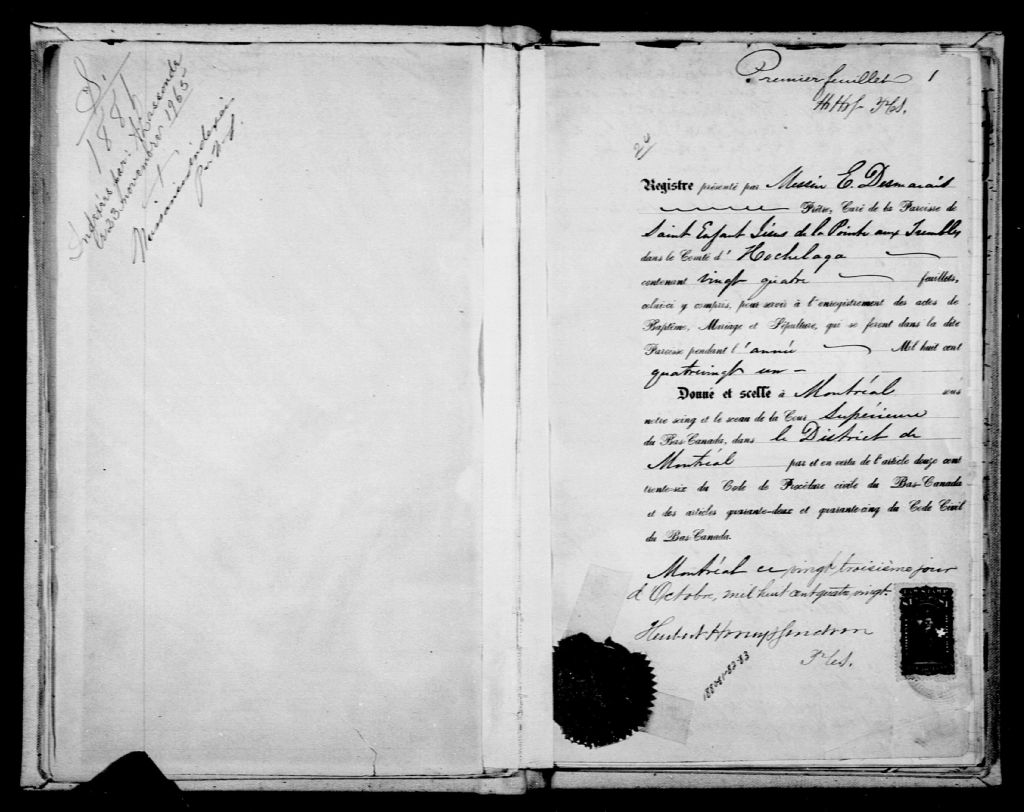 S.
1881
Indexes par:
le 23 novembre 1965
Premier feuillet 1
HHG PCS.
2º
Registre présenté par Messire E. Desmarais
Prêtre, Curé de la Paroisse de
Saint Enfant Jésus de la Pointe aux Trembles
dans le Comté d' Hochelaga
contenant vingt quatre feuillets,
celui-ci y compris, pour servir à l'enregistrement des actes de
Baptême, Mariage et Sépulture, qui se feront dans la dite
Paroisse pendant l'année Mil huit cent
quatrevingt un -
Donné et scellé à Montréal sous
notre seing et le sceau de la Cour Supérieure
du Bas-Canada, dans le District de
Montréal par et en vertu de l'article douze cent
trente-six du Code de Procédure civile du Bas-Canada
et des articles quarante-deux et quarante-cinq du Code Civil
du Bas-Canada.
Montréal ce vingt troisième jour
d'Octobre, mil huit cent quatre vingt.
Gendron
PCS.